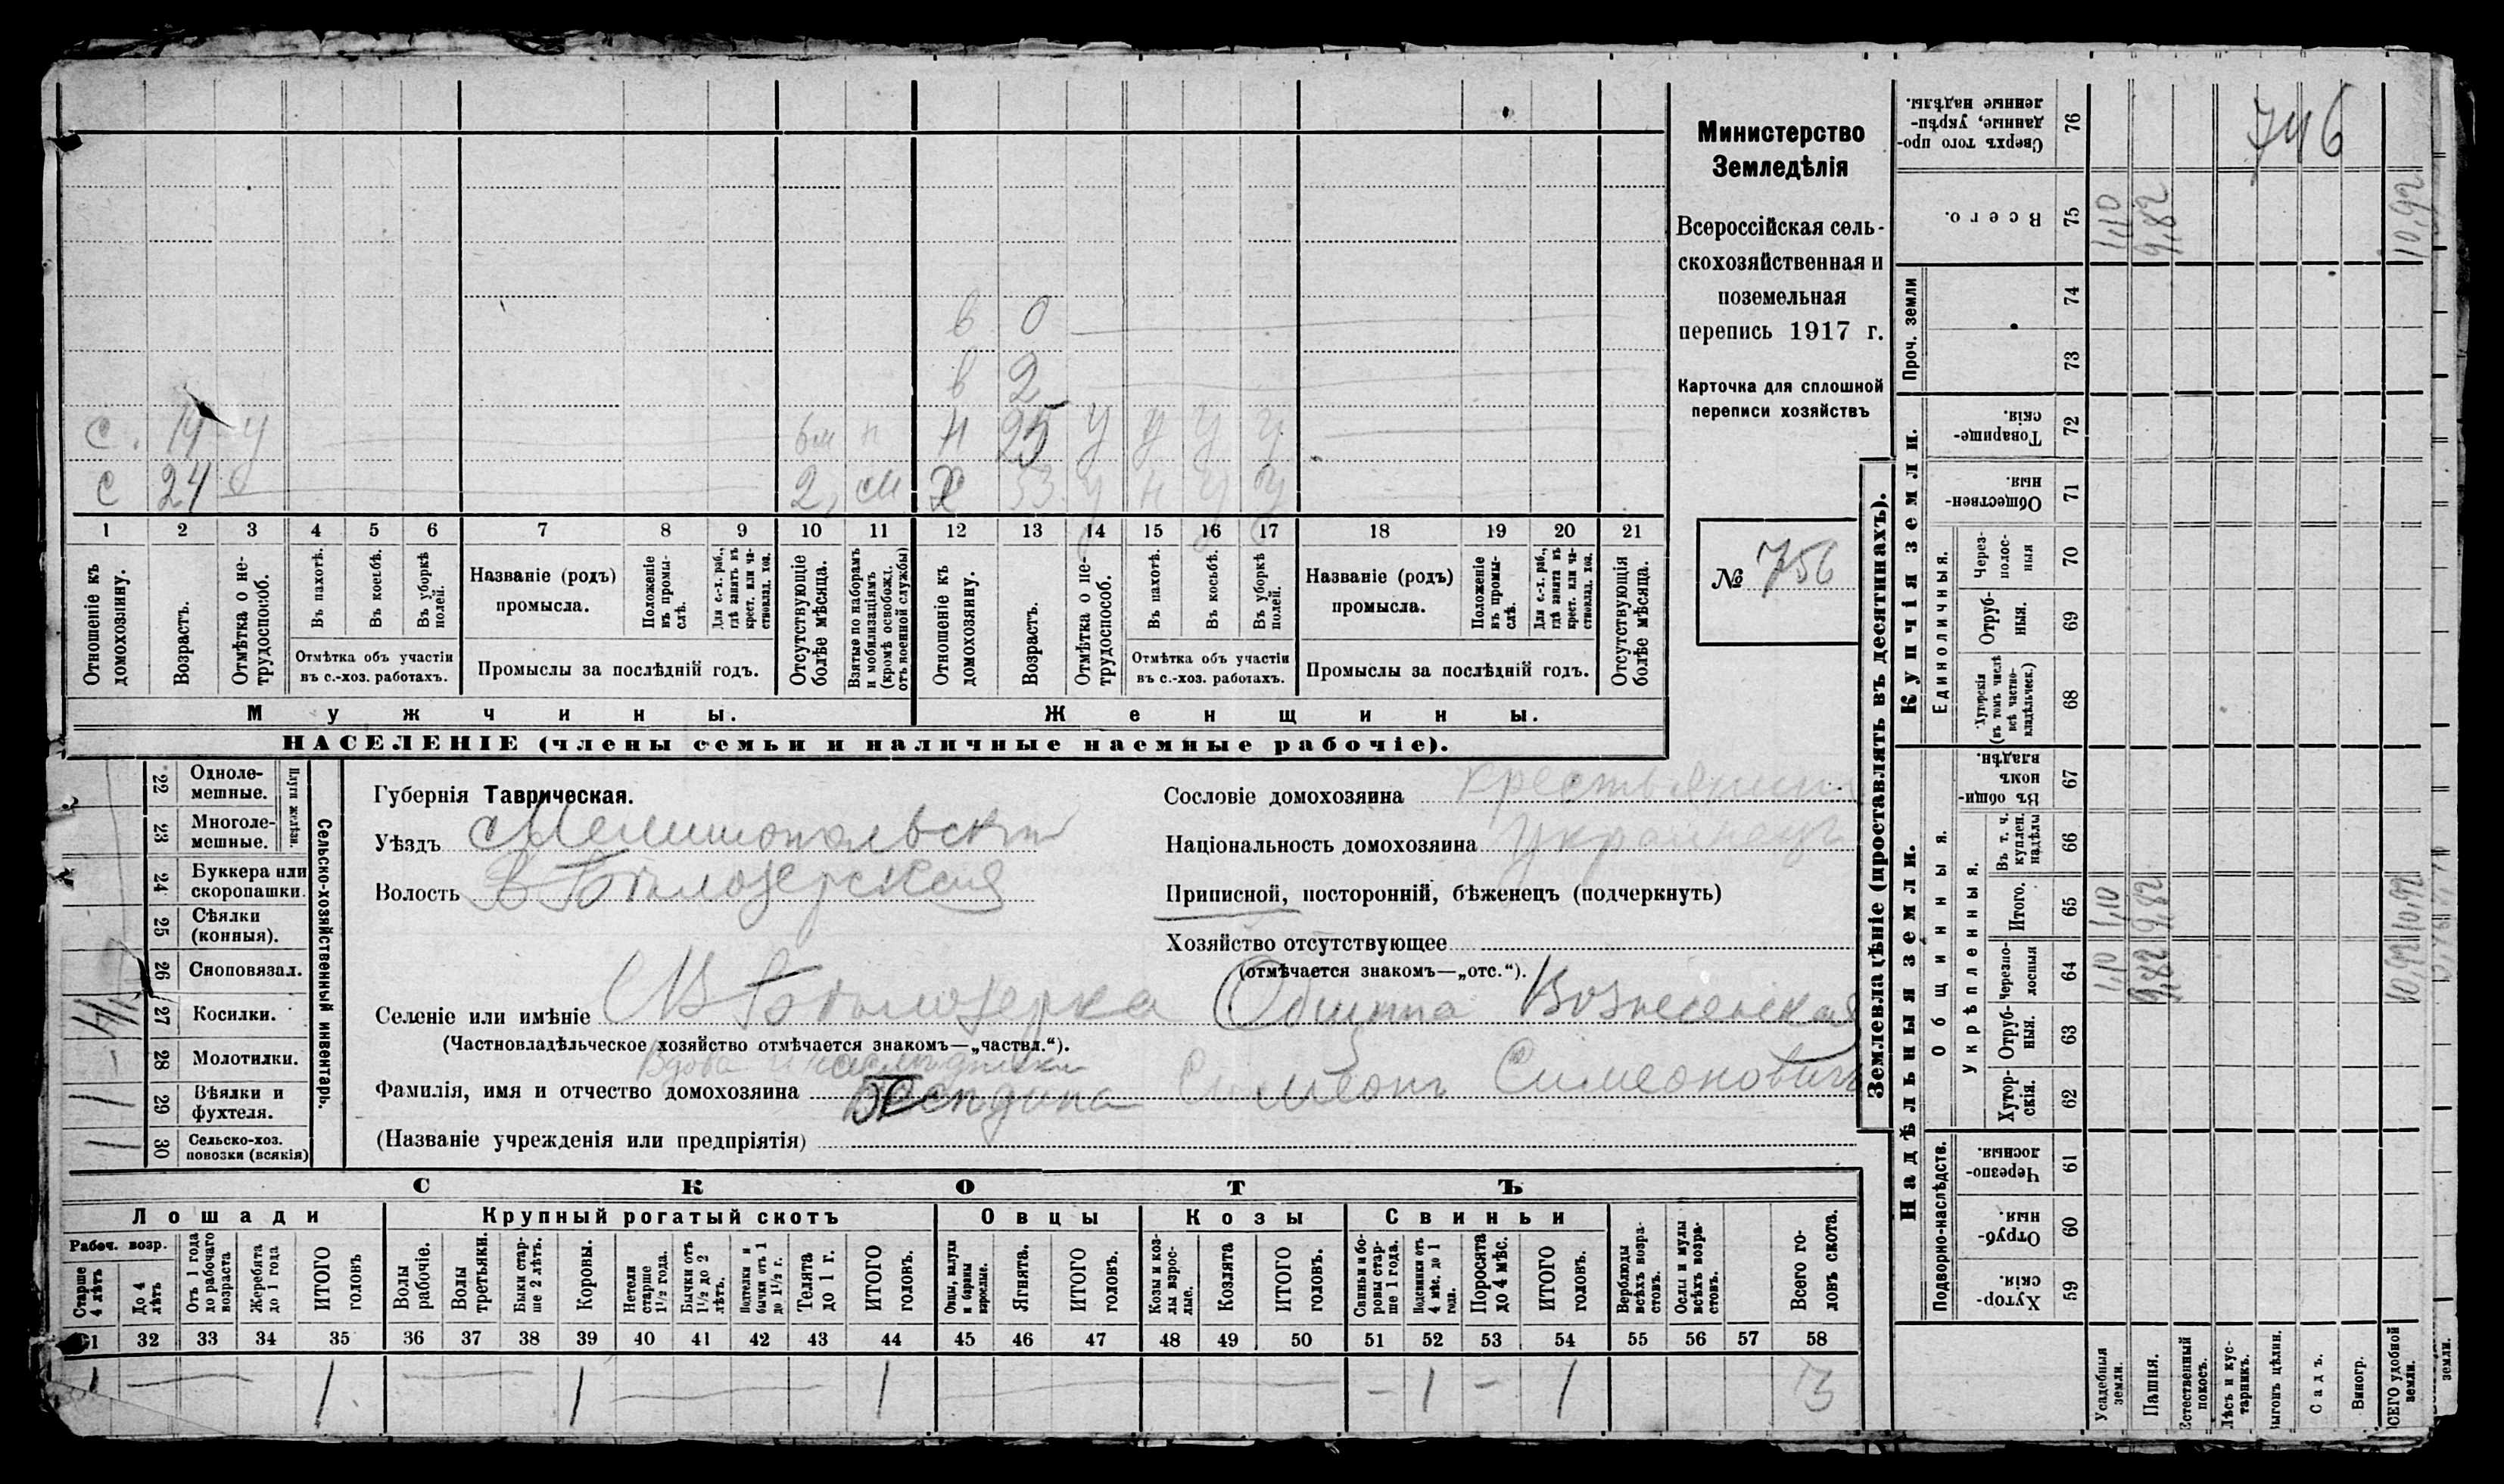 Министерство
Земледѣлія
Всероссійская сель-
скохозяйственная и
поземельная
перепись 1917 г.
Карточка для сплошной
переписи хозяйствъ
№ 756
746
в 0
в 2
с. 19 у 6м н Н 25 у у у у
с 24 2, см Х 53 у н у у
1 2 3 4 5 6 7 8 9 10 11 12 13 14 15 16 17 18 19 20 21
Отношеніе къ домохозяину.
Возрастъ.
Отмѣтка о не-трудоспособ.
Въ пахотѣ.
Въ косьбѣ.
Въ уборкѣ полей.
Отмѣтка объ участіи
въ с.-хоз. работахъ.
Названіе (родъ)
промысла.
Положеніе въ промы-слѣ.
Для с.-х. раб., гдѣ занятъ въ крест. или ча-стновлад. хоз.
Промыслы за послѣдній годъ.
Отсутствующіе болѣе мѣсяца.
Взятые по наборамъ и мобилизаціямъ (кромѣ освобожд. отъ военной службы)
Отношеніе къ домохозяину.
Возрастъ.
Отмѣтка о не-трудоспособ.
Въ пахотѣ.
Въ косьбѣ.
Въ уборкѣ полей.
Отмѣтка объ участіи
въ с.-хоз. работахъ.
Названіе (родъ)
промысла.
Положеніе въ промы-слѣ.
Для с.-х. раб., гдѣ занята въ крест. или ча-стновлад. хоз.
Промыслы за послѣдній годъ.
Отсутствующія болѣе мѣсяца.
Мужчины. Женщины.
НАСЕЛЕНІЕ (члены семьи и наличные наемные рабочіе).
Сельско-хозяйственный инвентарь.
Плуги желѣзн.
22 Одноле-мешные.
23 Многоле-мешные.
24 Буккера или скоропашки.
25 Сѣялки (конныя).
26 Сноповязал.
27 Косилки.
28 Молотилки.
1 29 Вѣялки и фухтеля.
1 30 Сельско-хоз. повозки (всякія)
Губернія Таврическая.
Уѣздъ Мелитопольскій
Волость В Бѣлозерская
Сословіе домохозяина крестьянинъ
Національность домохозяина Украинецъ
Приписной, посторонній, бѣженецъ (подчеркнуть)
Хозяйство отсутствующее
(отмѣчается знакомъ—„отс.“).
Селеніе или имѣніе С В Бѣлозерка Община Вознесенская
(Частновладѣльческое хозяйство отмѣчается знакомъ—„частвл.“).
Вдова и наслѣдники
Фамилія, имя и отчество домохозяина Симеонъ Симеоновичъ
(Названіе учрежденія или предпріятія)
СКОТЪ
Лошади Крупный рогатый скотъ Овцы Козы Свиньи
Рабоч. возр.
Старше 4 лѣтъ
До 4 лѣтъ
Отъ 1 года до рабочаго возраста
Жеребята до 1 года
ИТОГО головъ
Волы рабочіе.
Волы третьяки.
Быки стар-ше 2 лѣтъ.
Коровы.
Нетели старше 1½ года.
Бычки отъ 1½ до 2 лѣтъ.
Подтелки и бычки отъ 1 до 1½ г.
Телята до 1 г.
ИТОГО головъ.
Овцы, валухи и бараны взрослые.
Ягнята.
ИТОГО головъ.
Козы и коз-лы взрос-лые.
Козлята
ИТОГО головъ.
Свиньи и бо-ровы стар-ше 1 года.
Подсвинки отъ 4 мѣс. до 1 года.
Поросята до 4 мѣс.
ИТОГО головъ.
Верблюды всѣхъ возра-стовъ.
Ослы и мулы всѣхъ возра-стовъ.
Всего го-ловъ скота.
31 32 33 34 35 36 37 38 39 40 41 42 43 44 45 46 47 48 49 50 51 52 53 54 55 56 57 58
1 — 1 — 1 — 1 — - 1 - 1 3
Землевладѣніе (проставлять въ десятинахъ).
Надѣльныя земли. Купчія земли.
Проч. земли
Подворно-наслѣдств.
Общинныя.
Укрѣпленныя.
Единоличныя.
Хутор-скія. 59
Отруб-ныя. 60
Черезпо-лосныя. 61
Хутор-скія. 62
Отруб-ныя. 63
Черезпо-лосныя 64 1,10 9,82 10,92
Итого. 65 1,10 9,82 10,92
Въ т. ч. куплен. надѣлы 66
Въ общи-номъ владѣн. 67
Хуторскія (въ томъ числѣ всѣ частно-владѣльческ.) 68
Отруб-ныя. 69
Через-полос-ныя 70
Обществен-ныя. 71
Товарище-скія. 72
73
74
Всего. 75 1,10 9,82 10,92
Сверхъ того про-данные, укрѣп-ленные надѣлы. 76
Усадебныя земли.
Пашня.
Естественный покосъ.
Лѣсъ и кус-тарникъ.
Выгонъ цѣлин.
Садъ.
Виногр.
ВСЕГО удобной земли.
земли.